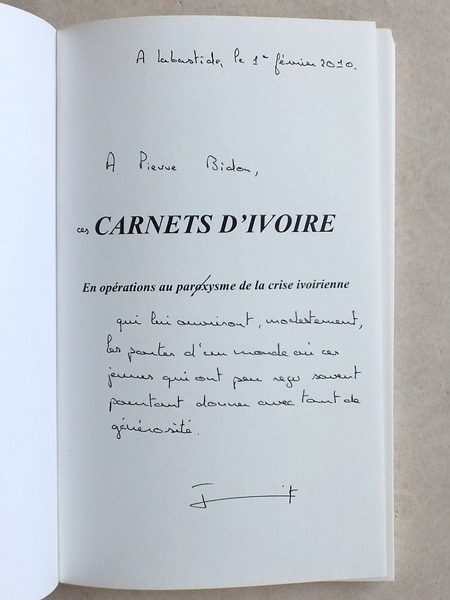 A Labastide, le 1er février 2010.
A Pierre Bidon,
ces CARNETS D'IVOIRE
En opérations au paroxysme de la crise ivoirienne
qui lui ouvriront, modestement,
les portes d'un monde où ces
jeunes qui ont peu reçu savent
pourtant donner avec tant de
générosité.